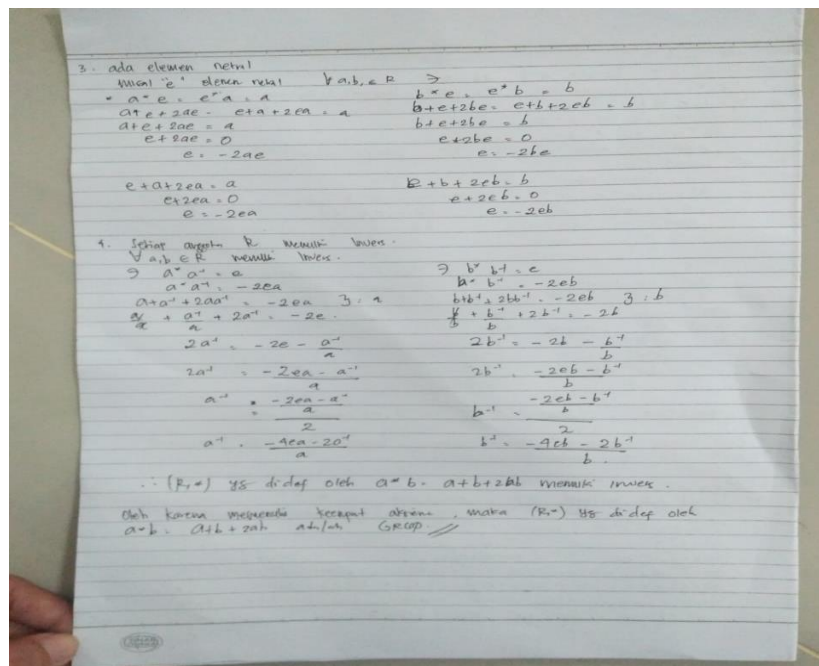 3. ada elemen netral
misal "e" elemen netral ∀ a,b, ∈ R ∋
* a * e = e * a = a
a + e + 2ae = e + a + 2ea = a
a + e + 2ae = a
e + 2ae = 0
e = -2ae
e + a + 2ea = a
e + 2ea = 0
e = -2ea
b * e = e * b = b
b + e + 2be = e + b + 2eb = b
b + e + 2be = b
e + 2be = 0
e = -2be
e + b + 2eb = b
e + 2eb = 0
e = -2eb
4. Setiap anggota R memiliki invers.
∀ a,b ∈ R memiliki invers.
∋ a * a⁻¹ = e
a * a⁻¹ = -2ea
a + a⁻¹ + 2aa⁻¹ = -2ea } : a
a/a + a⁻¹/a + 2a⁻¹ = -2e.
2a⁻¹ = -2e - a⁻¹/a
2a⁻¹ = (-2ea - a⁻¹)/a
a⁻¹ = ((-2ea - a⁻)/a)/2
a⁻¹ = (-4ea - 2a⁻¹)/a
∋ b * b⁻¹ = e
b * b⁻¹ = -2eb
b + b⁻¹ + 2bb⁻¹ = -2eb } : b
b/b + b⁻¹/b + 2b⁻¹ = -2b
2b⁻¹ = -2b - b⁻¹/b
2b⁻¹ = (-2eb - b⁻¹)/b
b⁻¹ = ((-2eb - b⁻¹)/b)/2
b⁻¹ = (-4eb - 2b⁻¹)/b.
∴ (R, *) yg di def oleh a * b = a + b + 2ab memiliki invers.
Oleh karena memenuhi keempat aksioma, maka (R, *) yg di def oleh
a * b = a + b + 2ab adalah GRUP.